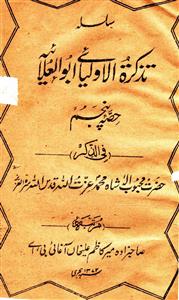 سلسلہ
تذکرۃ الاولیائے ابوالعلائیہ
حصہ پنجم
(فی الذکر)
حضرت محبوب اللہ شاہ محمد عزت اللہ قدس اللہ سرہ العزیز
صاحبزادہ میر کاظم علیخاں آغائی بی۔اے